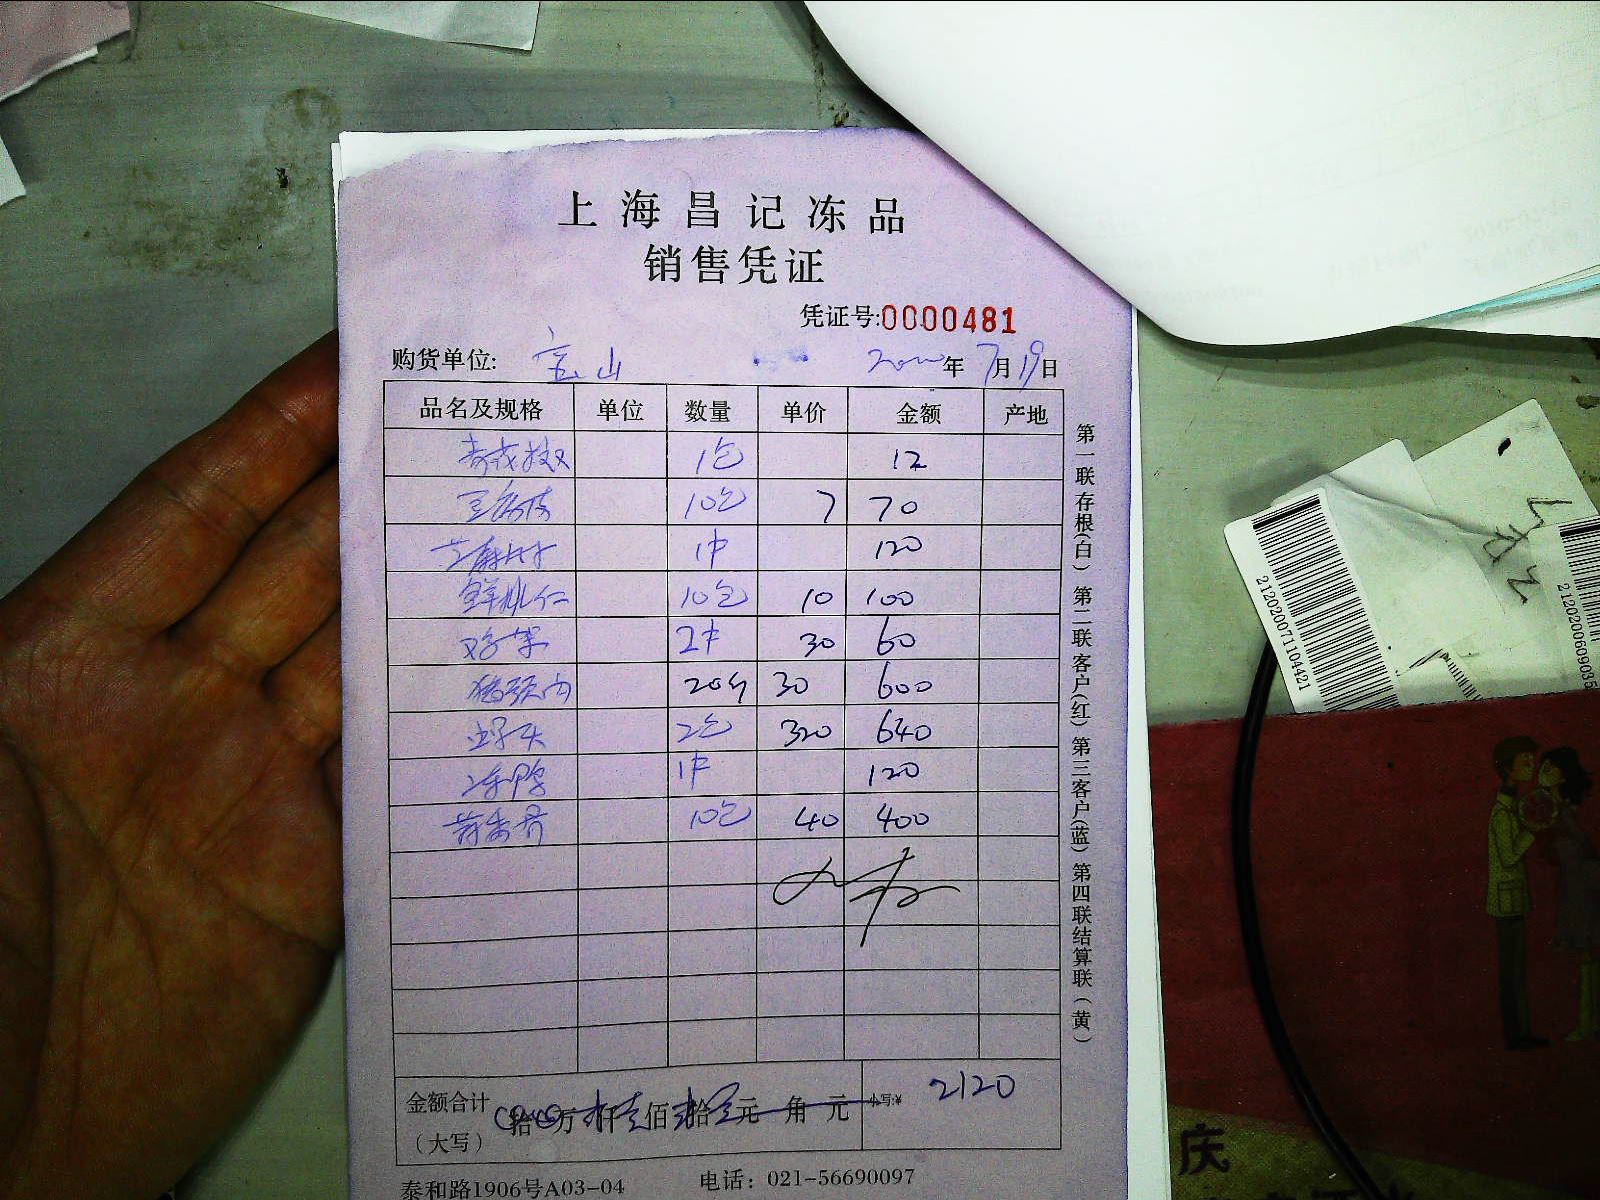 上海昌记冻品
销售凭证
凭证号:0000481
购货单位: 宝山 年7月19日
品名及规格 单位 数量 单价 金额 产地
1包 12
10包 7 70
1件 120
鲜桃仁 10包 10 100
鸡架 2件 30 60
猪颈肉 20 30 600
2包 320 640
冻鸭 1件 120
10包 40 400
金额合计 拾 万 仟 佰 拾 元 角 元 小写:¥ 2120
（大写）
泰和路1906号A03-04 电话：021-56690097
第一联存根(白) 第二联客户(红) 第三客户(蓝) 第四联结算联(黄)
212020071104421
2120200609035
庆